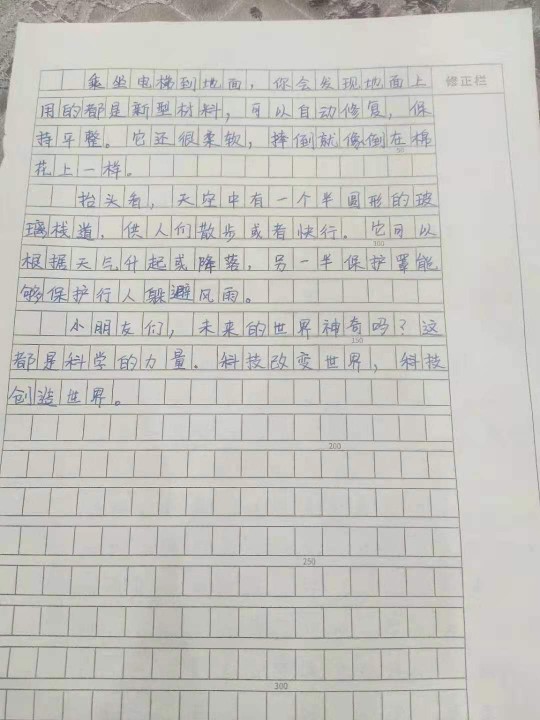 乘坐电梯到地面，你会发现地面上
修正栏
用的都是新型材料，可以自动修复，保
持平整。它还很柔软，摔倒就像倒在棉
50
花上一样。
抬头看，天空中有一个半圆形的玻
璃栈道，供人们散步或者快行。它可以
100
根据天气升起或降落，另一半保护罩能
够保护行人躲避风雨。
小朋友们，未来的世界神奇吗？这
150
都是科学的力量。科技改变世界，科技
创造世界。
200
250
300